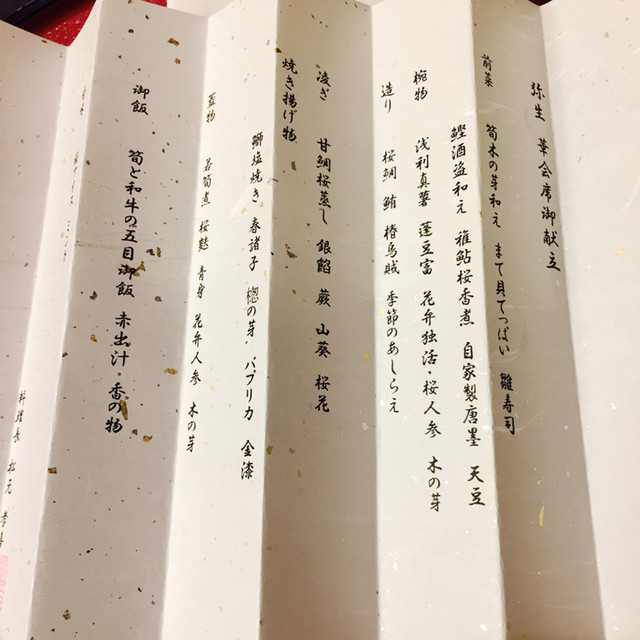 弥生 華会席御献立
前菜 筍木の芽和え まて貝てっぱい 雛寿司
鰹酒盗和え 稚鮎桜香煮 自家製唐墨 天豆
椀物 浅利真薯 蓬豆富 花弁独活・桜人参 木の芽
造り 桜鯛 鮪 椿烏賊 季節のあしらえ
凌ぎ 甘鯛桜蒸し 銀餡 蕨 山葵 桜花
焼き揚げ物
鰤塩焼き 春諸子 楤の芽 パプリカ 金漆
蓋物 若筍煮 桜麩 青身 花弁人参 木の芽
御飯 筍と和牛の五目御飯 赤出汁・香の物
料理長 松元